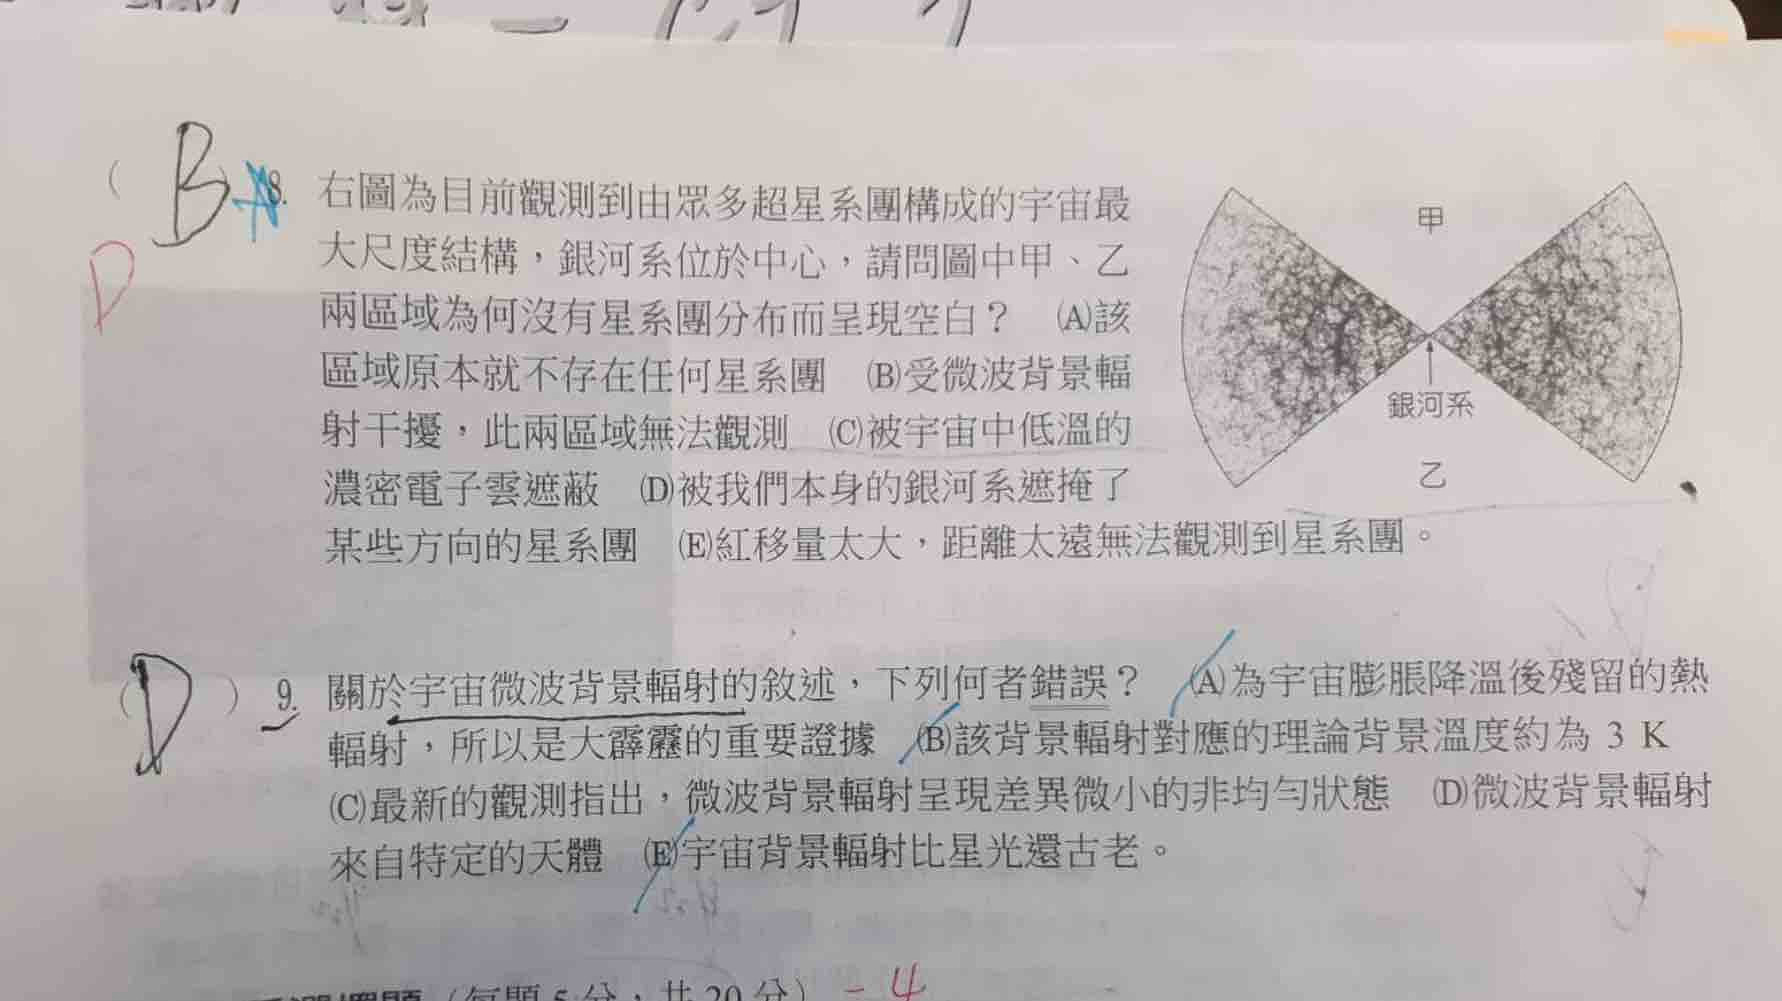 ( B ) 8. 右圖為目前觀測到由眾多超星系團構成的宇宙最
D
大尺度結構，銀河系位於中心，請問圖中甲、乙
兩區域為何沒有星系團分布而呈現空白？ (A)該
區域原本就不存在任何星系團 (B)受微波背景輻
射干擾，此兩區域無法觀測 (C)被宇宙中低溫的
濃密電子雲遮蔽 (D)被我們本身的銀河系遮掩了
某些方向的星系團 (E)紅移量太大，距離太遠無法觀測到星系團。
甲
銀河系
乙
( D ) 9. 關於宇宙微波背景輻射的敘述，下列何者錯誤？ (A)為宇宙膨脹降溫後殘留的熱
輻射，所以是大霹靂的重要證據 (B)該背景輻射對應的理論背景溫度約為 3 K
(C)最新的觀測指出，微波背景輻射呈現差異微小的非均勻狀態 (D)微波背景輻射
來自特定的天體 (E)宇宙背景輻射比星光還古老。
（每題 5 分，共 20 分） -4